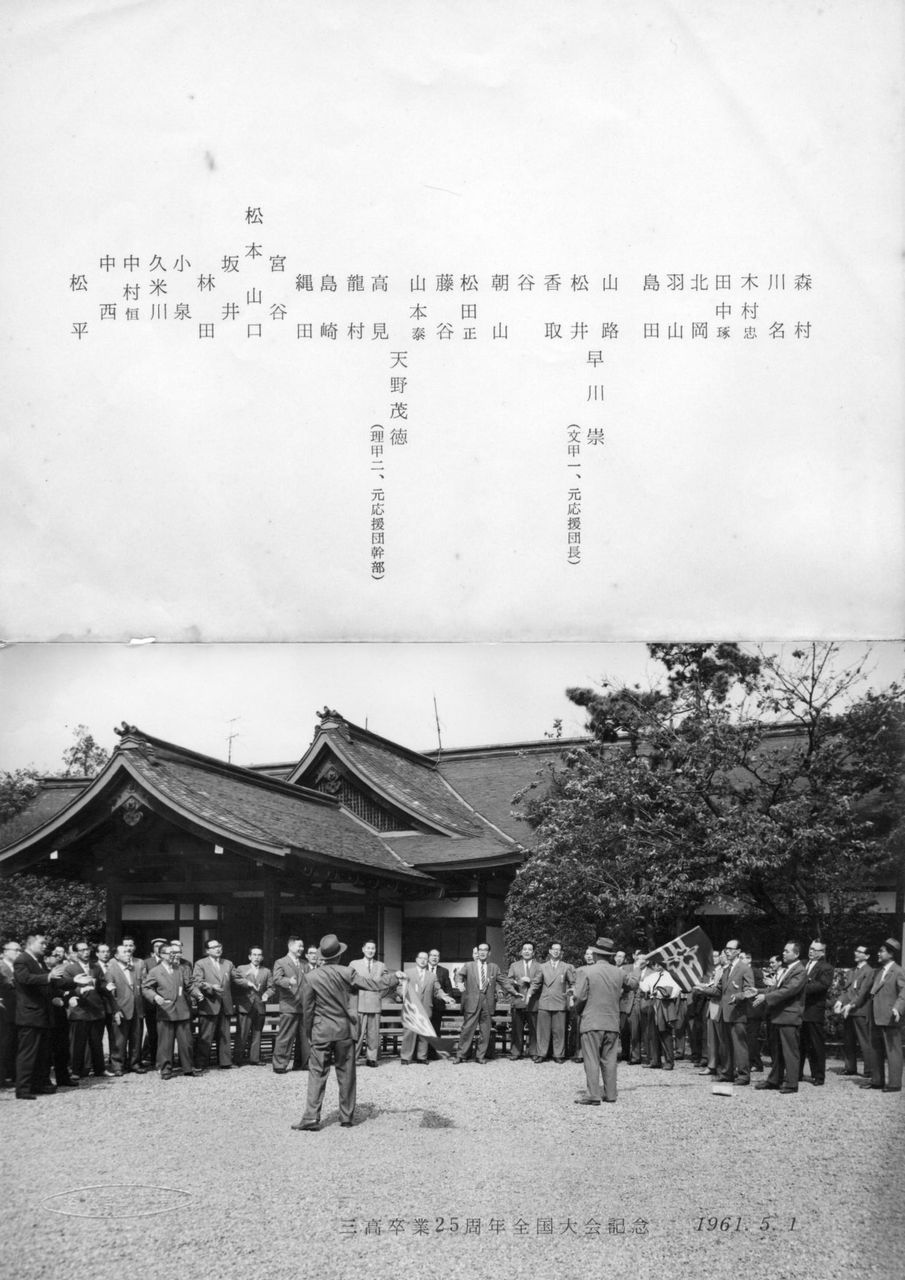 森村
川名
木村忠
田中琢
北岡
羽山
島田
山路
早川崇
(文甲一、元応援団長)
松井
香取
谷
朝山
松田正
藤谷
山本泰
天野茂徳
(理甲二、元応援団幹部)
高見
龍村
島崎
縄田
宮谷
松本
山口
坂井
林田
小泉
久米川
中村恒
中西
松平
三高卒業25周年全国大会記念 1961.5.1